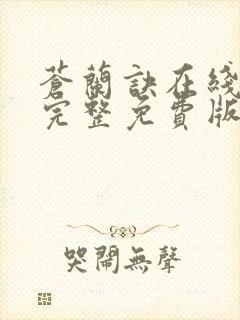 蒼蘭訣在綫
完整免費版
哭鬧無聲